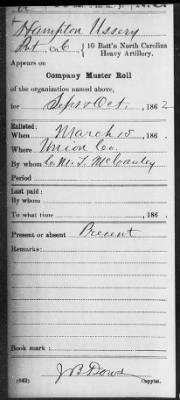 Hampton Ussery
Pvt Co C { 10 Batt's North Carolina
Heavy Artillery.
Appears on
Company Muster Roll
of the organization named above,
for Sept & Oct, 1862
Enlisted:
When March 15, 186 .
Where Union Co.
By whom
Period
Last paid:
By whom
To what time , 186 .
Present or absent Present
Remarks:
Book mark:
(642) Copyist.